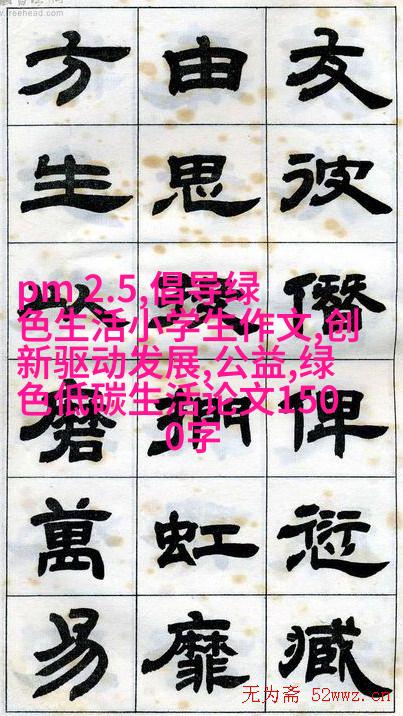 .freehead.com
友彼僭俾愆臧
由思虹靡
方生以磨萬易
pm 2.5,倡导绿
色生活小学生作文,创
新驱动发展,公益,绿
色低碳生活论文150
0字
无为斋 52wwz.cn